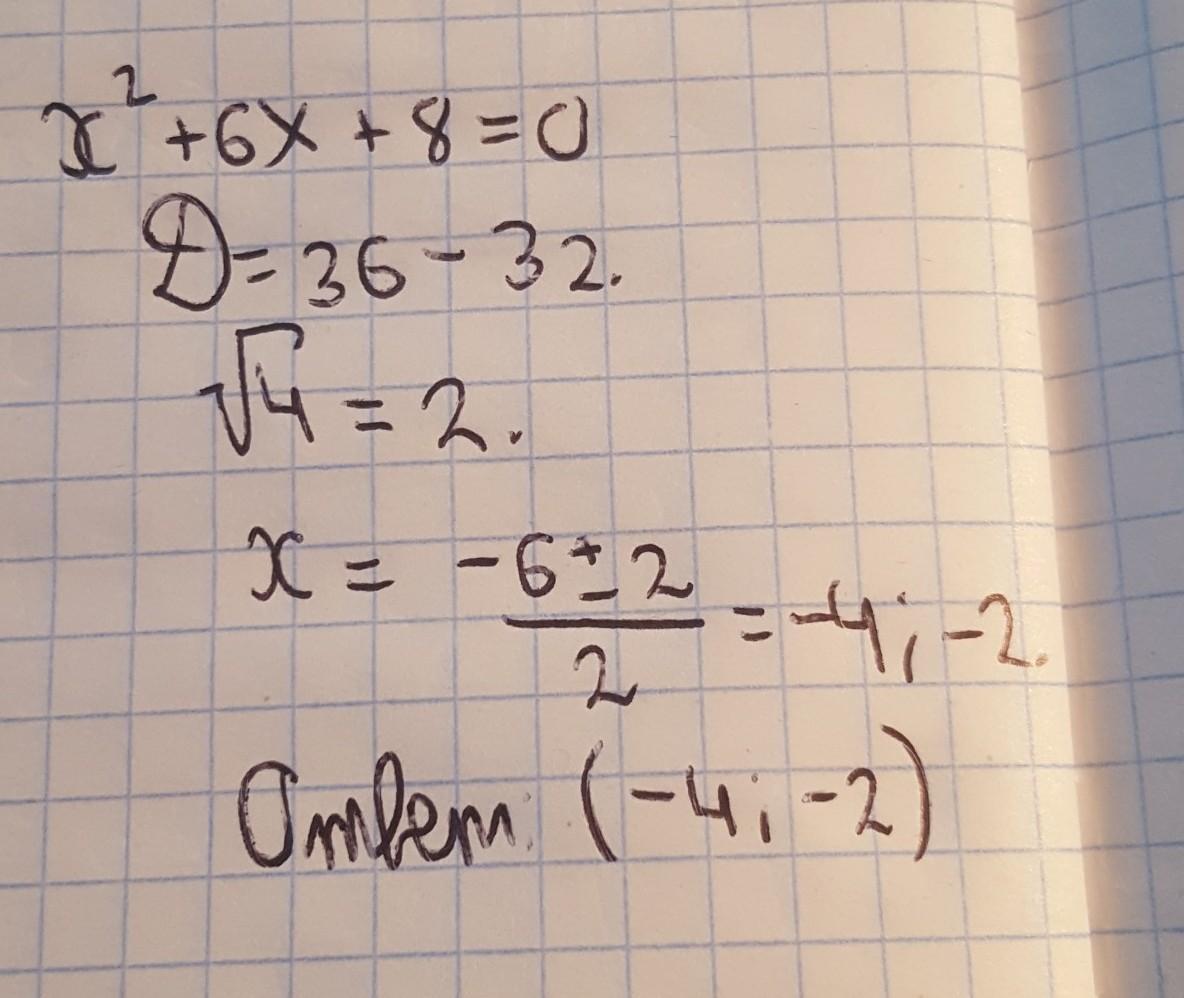 x² + 6x + 8 = 0
D = 36 - 32.
√4 = 2.
x = (-6 ± 2)/2 = -4; -2.
Ответ: (-4; -2)